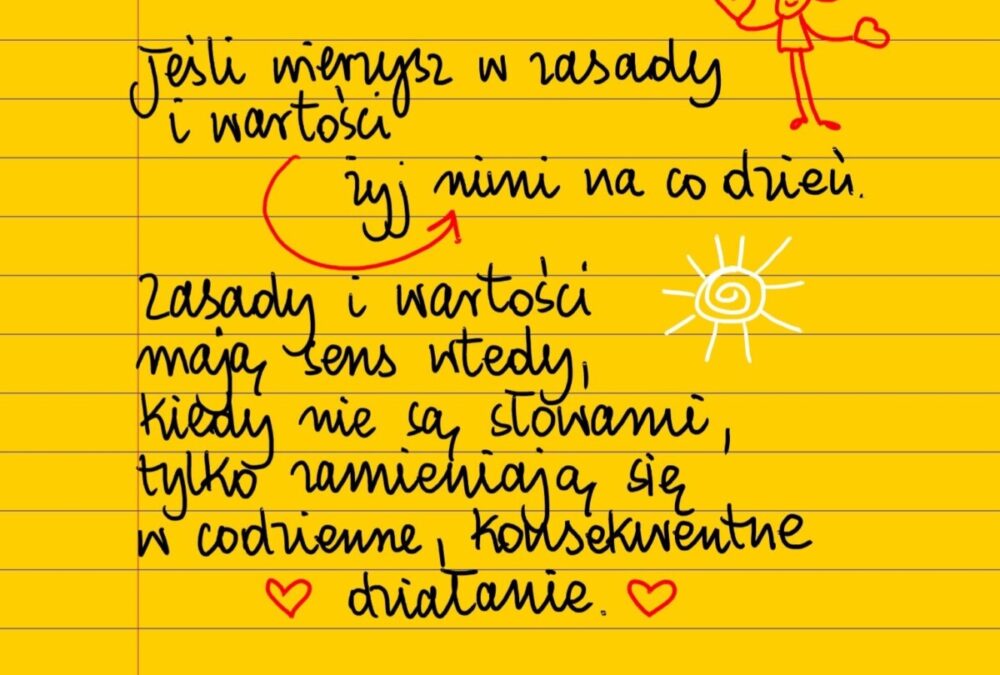 Jeśli wierzysz w zasady
i wartości
żyj nimi na co dzień.
Zasady i wartości
mają sens wtedy,
kiedy nie są słowami,
tylko zamieniają się
w codzienne, konsekwentne
działanie.